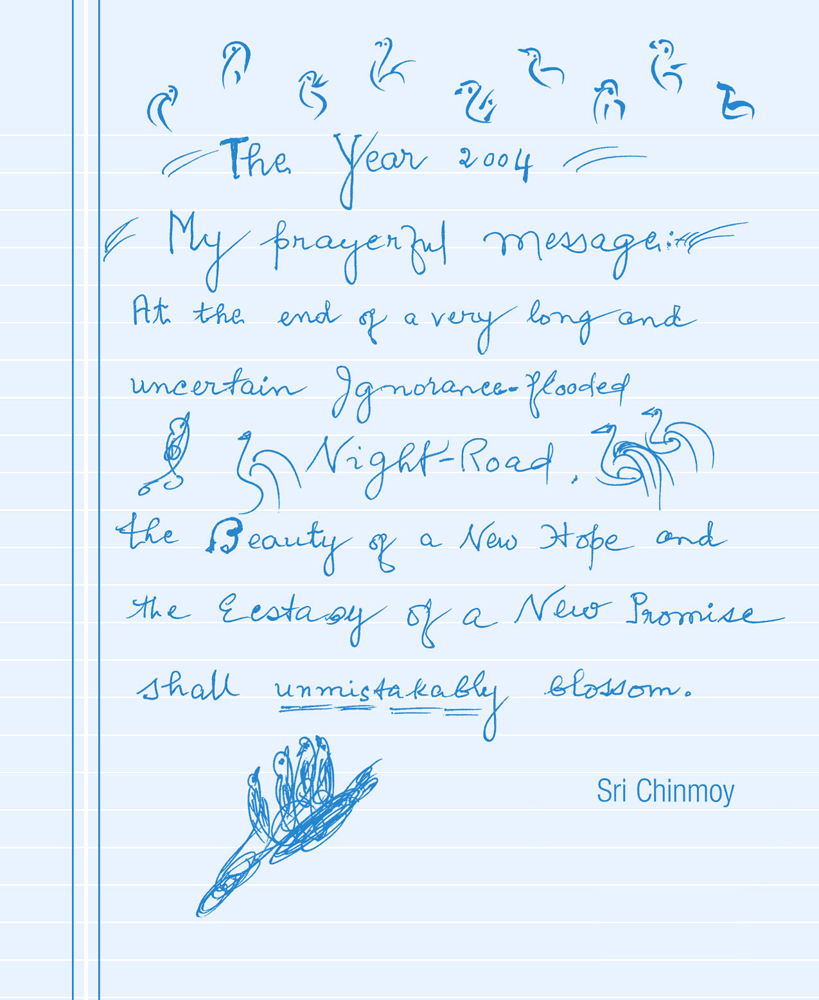 The Year 2004
My prayerful message:
At the end of a very long and
uncertain Ignorance-flooded
Night-Road,
the Beauty of a New Hope and
the Ecstasy of a New Promise
shall unmistakably blossom.
Sri Chinmoy